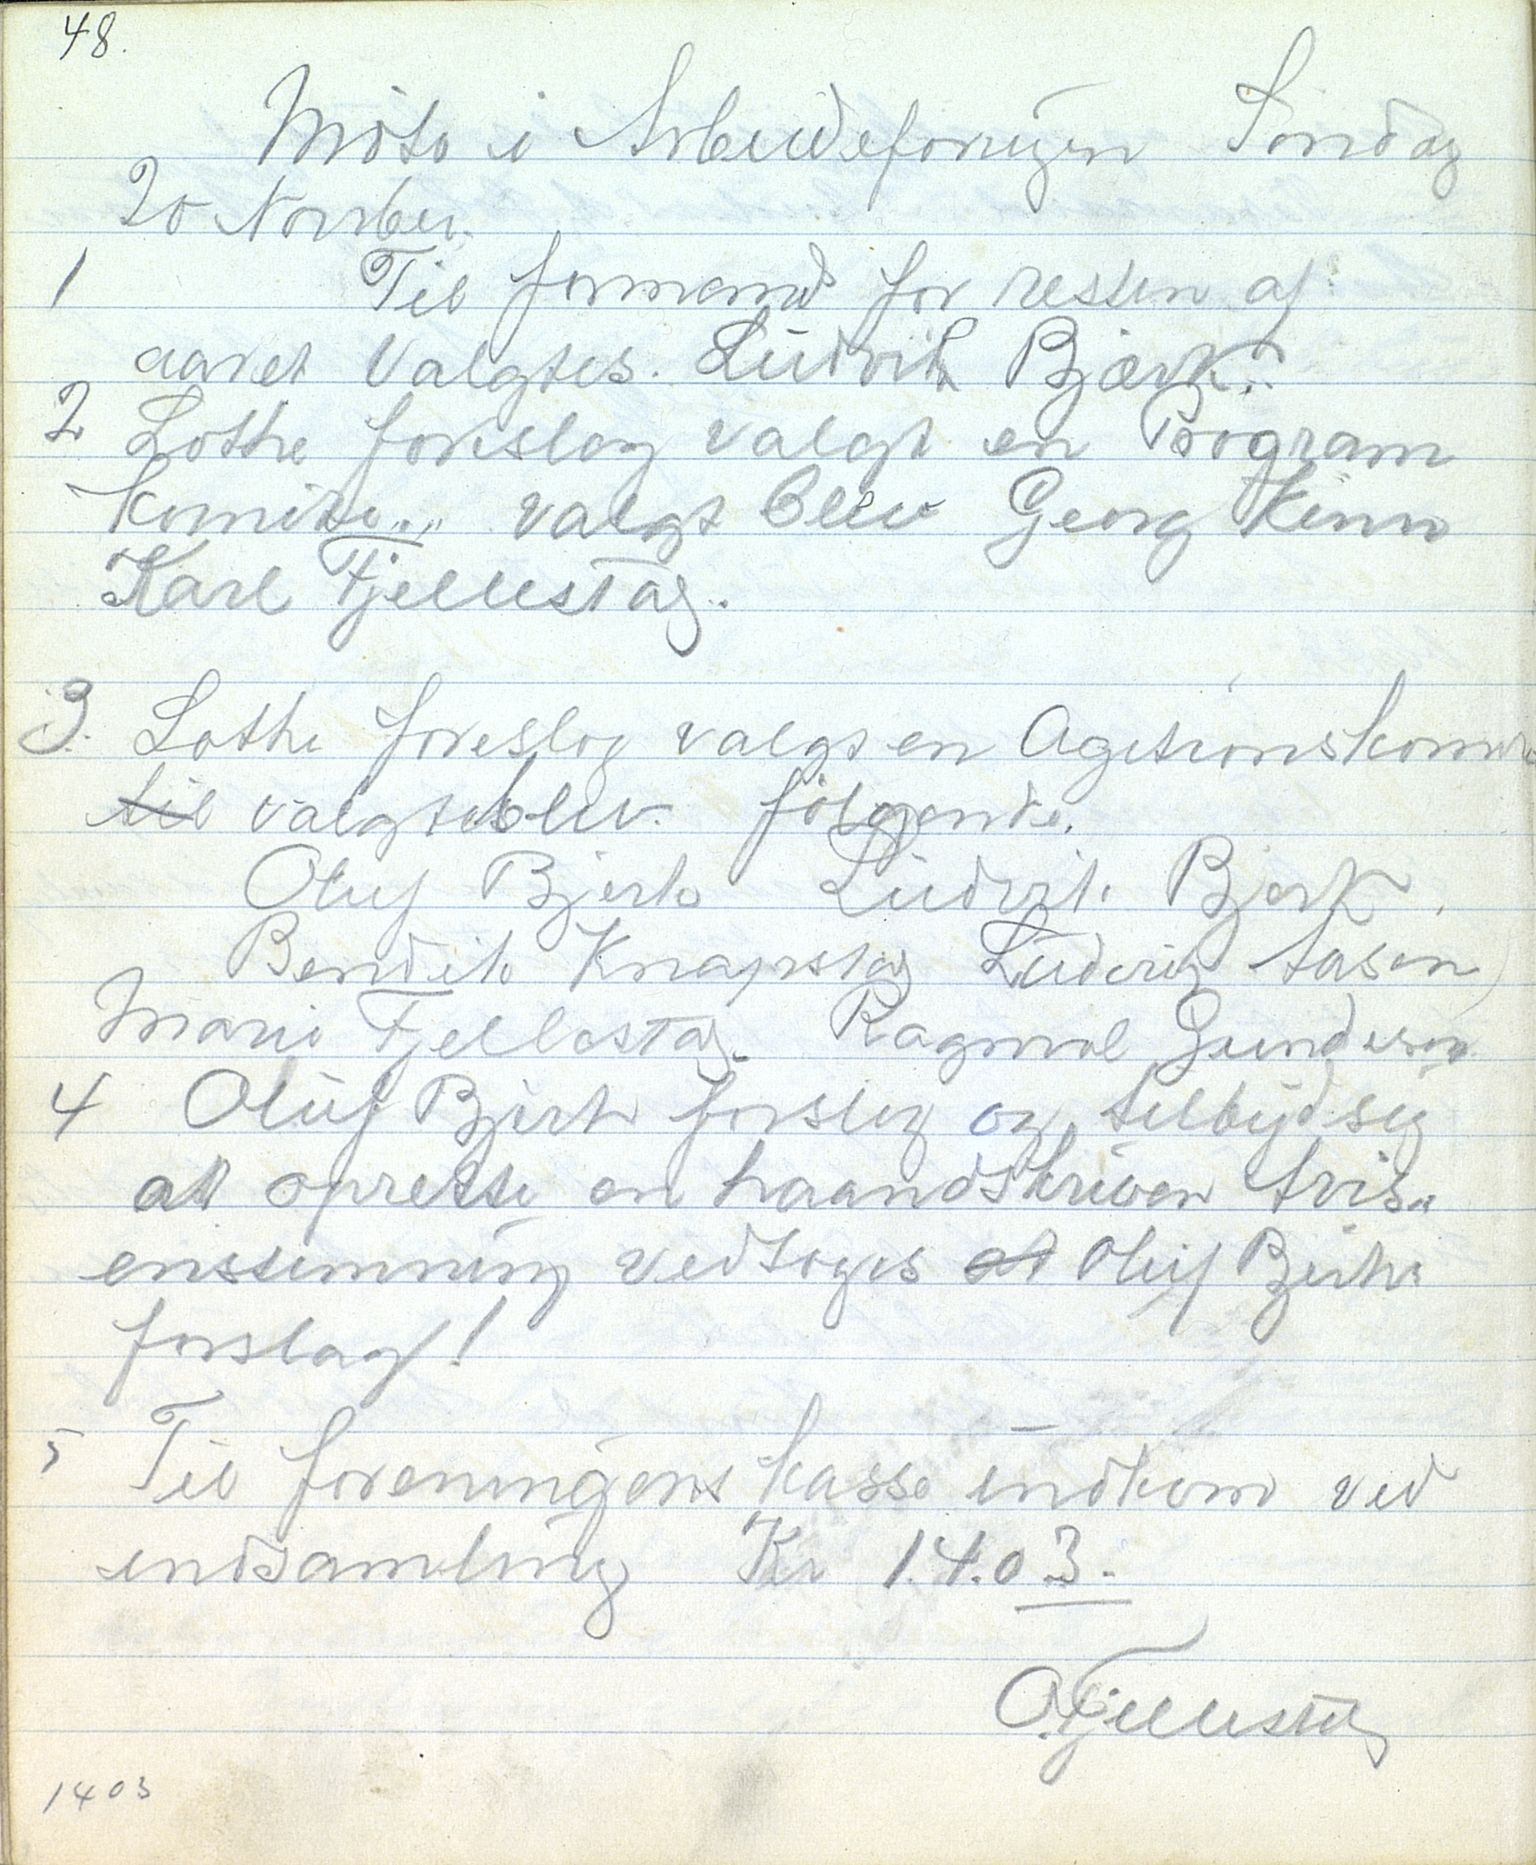 48.
Möte i Arbeideforeigen Söndag
20 Novrber.
1 Til formand for resten af
aaret valgtes. Ludvik Bjærk.
2 Lothe foreslog valgt en Program
komite.,, valgt blev Georg Kinn
Karl Fjellestag.
3. Lothe foreslog valgt en Agitionskomite
til valgtes blev fölgende.
Oluf Bjerk Ludvik Bjerk.
Bendik Knapstag Ludvig Aasen
Marie Fjellestag. Ragnval Gunderson
4 Oluf Bjerk forslog og tilbyd sig
at oprette en haandskriven Avis.,
enstemning vedtoges at Oluf Bjerks
forslag!
5 Til foreningens kasse indkom ved
indsamling Kr 14.03.
O. Fjellestag
1403